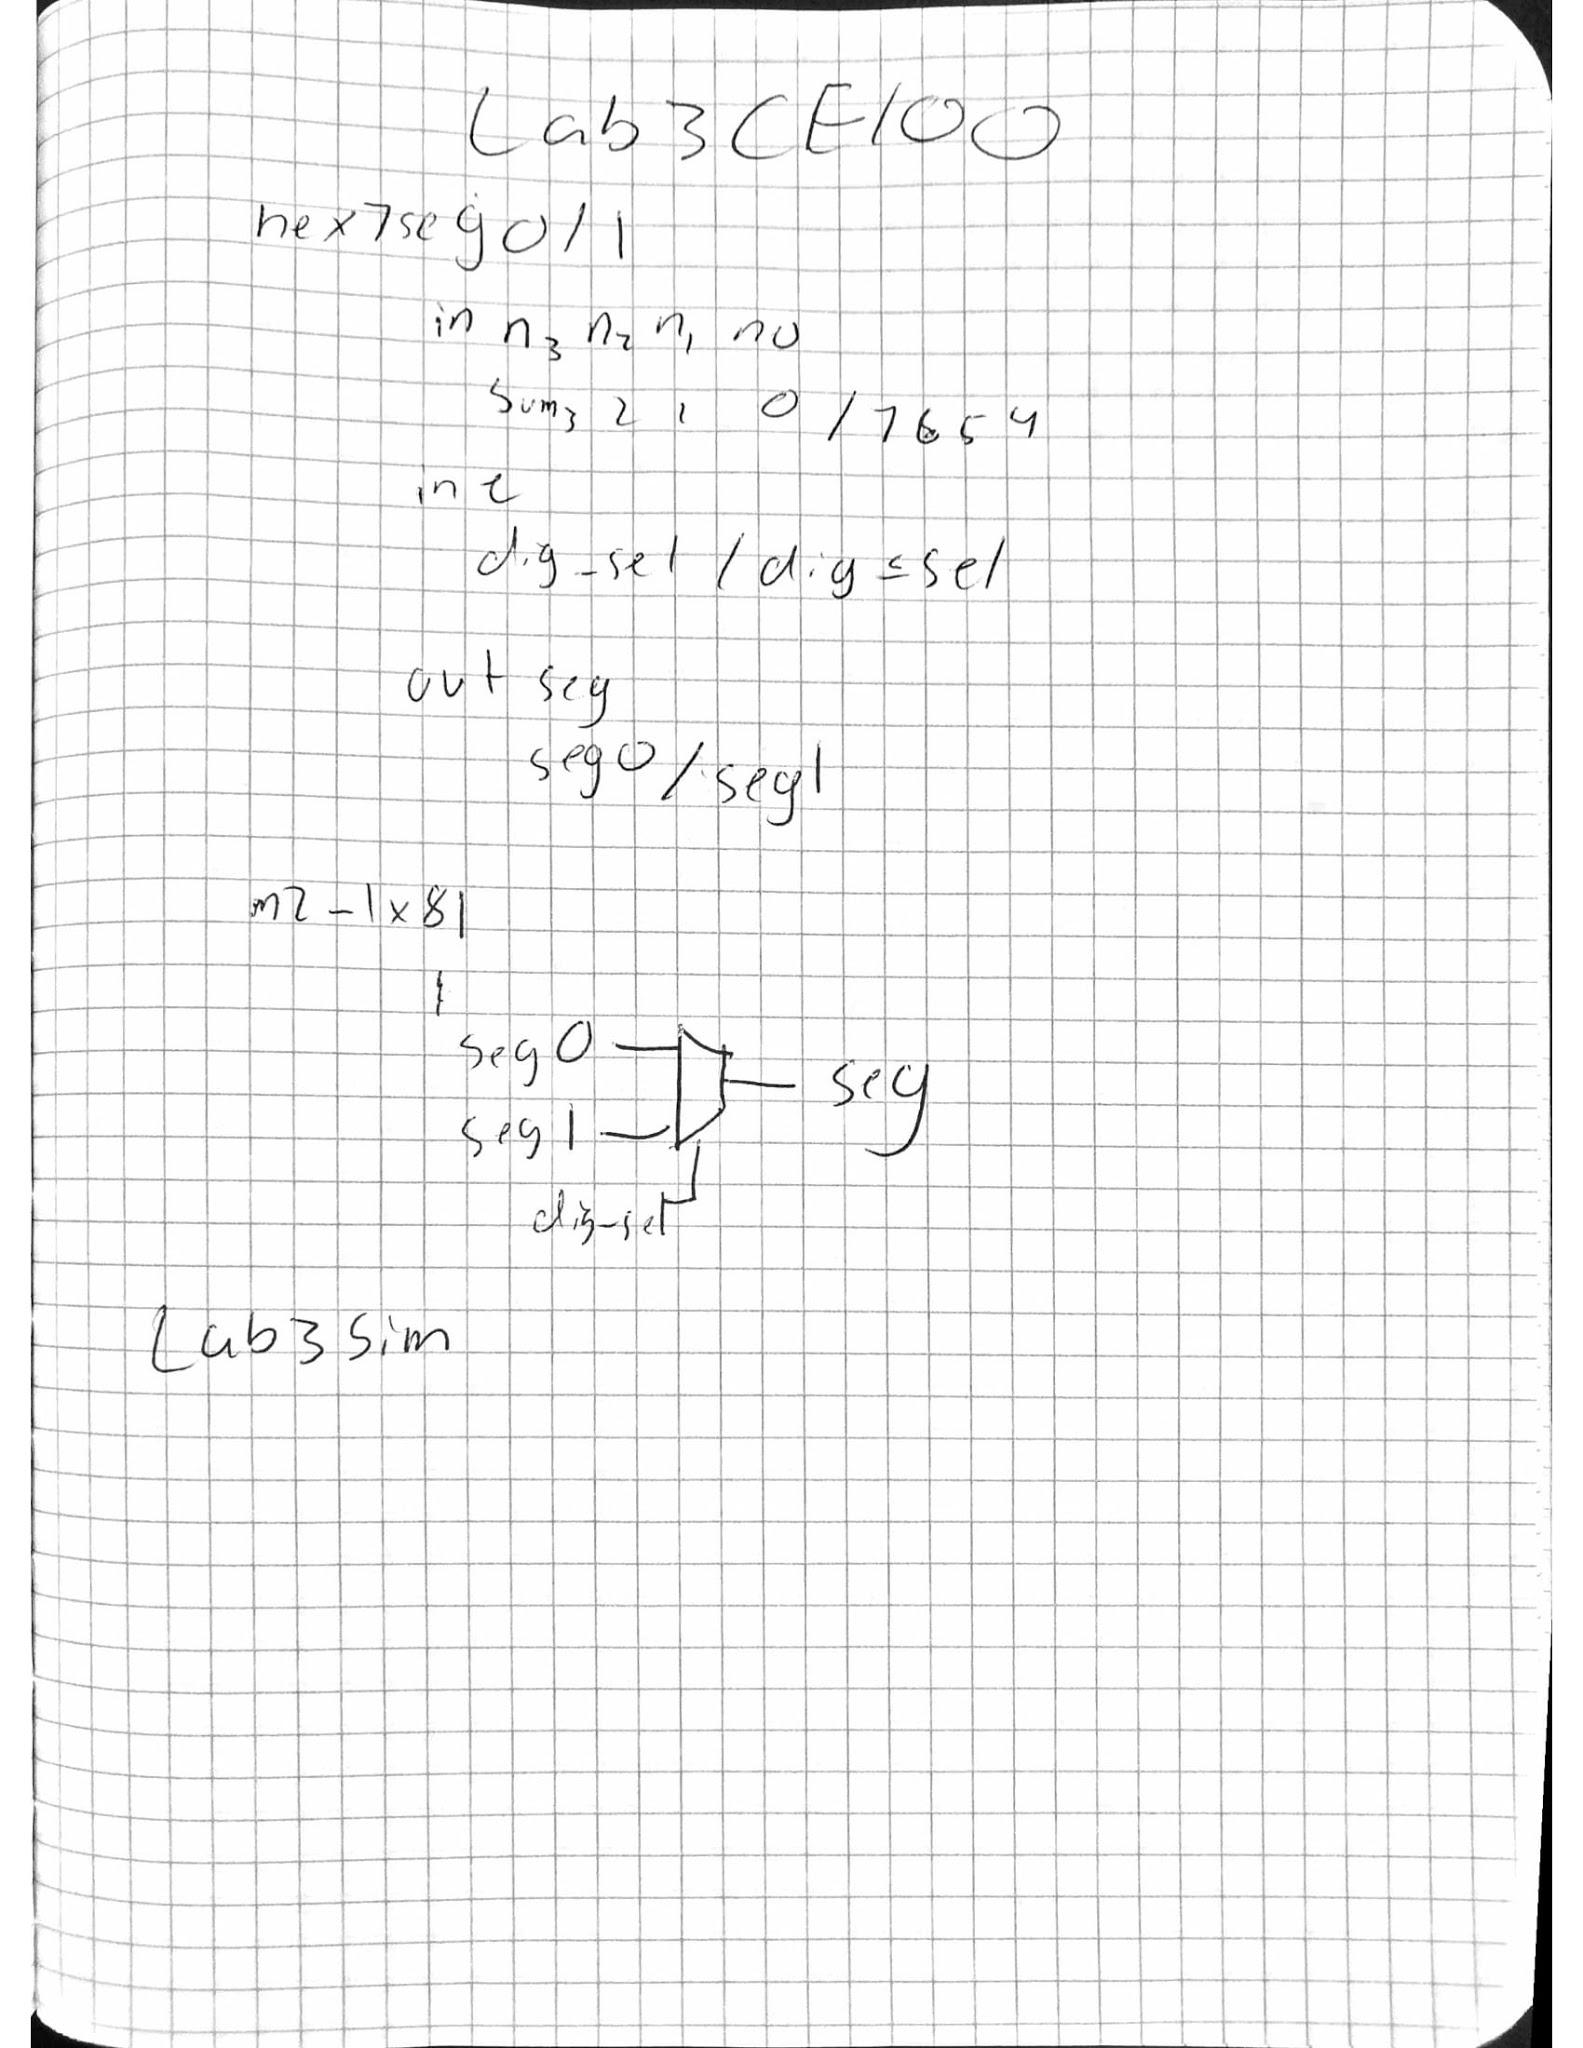 Lab3 CE100
hex7seg0/1
in n3 n2 n1 n0
Sum3 2 1 0 / 7 6 5 4
in e
dig_sel / dig_sel
out seg
seg0 / seg1
m2-1x8
seg0
seg
seg1
dig_sel
Lab3 Sim